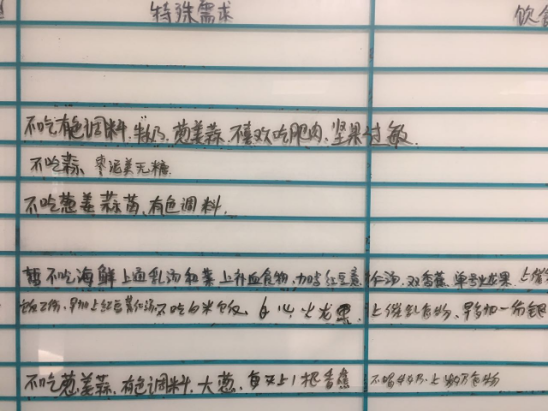 特殊需求 饮食
不吃有色调料.牛奶.葱姜蒜.不喜欢吃肥肉.坚果过敏
不吃蒜 枣泥羹无糖
不吃葱姜蒜苗,有色调料.
暂不吃海鲜 上通乳汤和菜 上补血食物,加 红豆薏仁汤,双香蕉 单号火龙果
早加上红豆薏仁汤 不吃白米饭, 白心火龙果. 上催乳食物,早多加一份
不吃葱姜蒜,有色调料,大葱,每天上1把香蕉 不喝牛奶.上